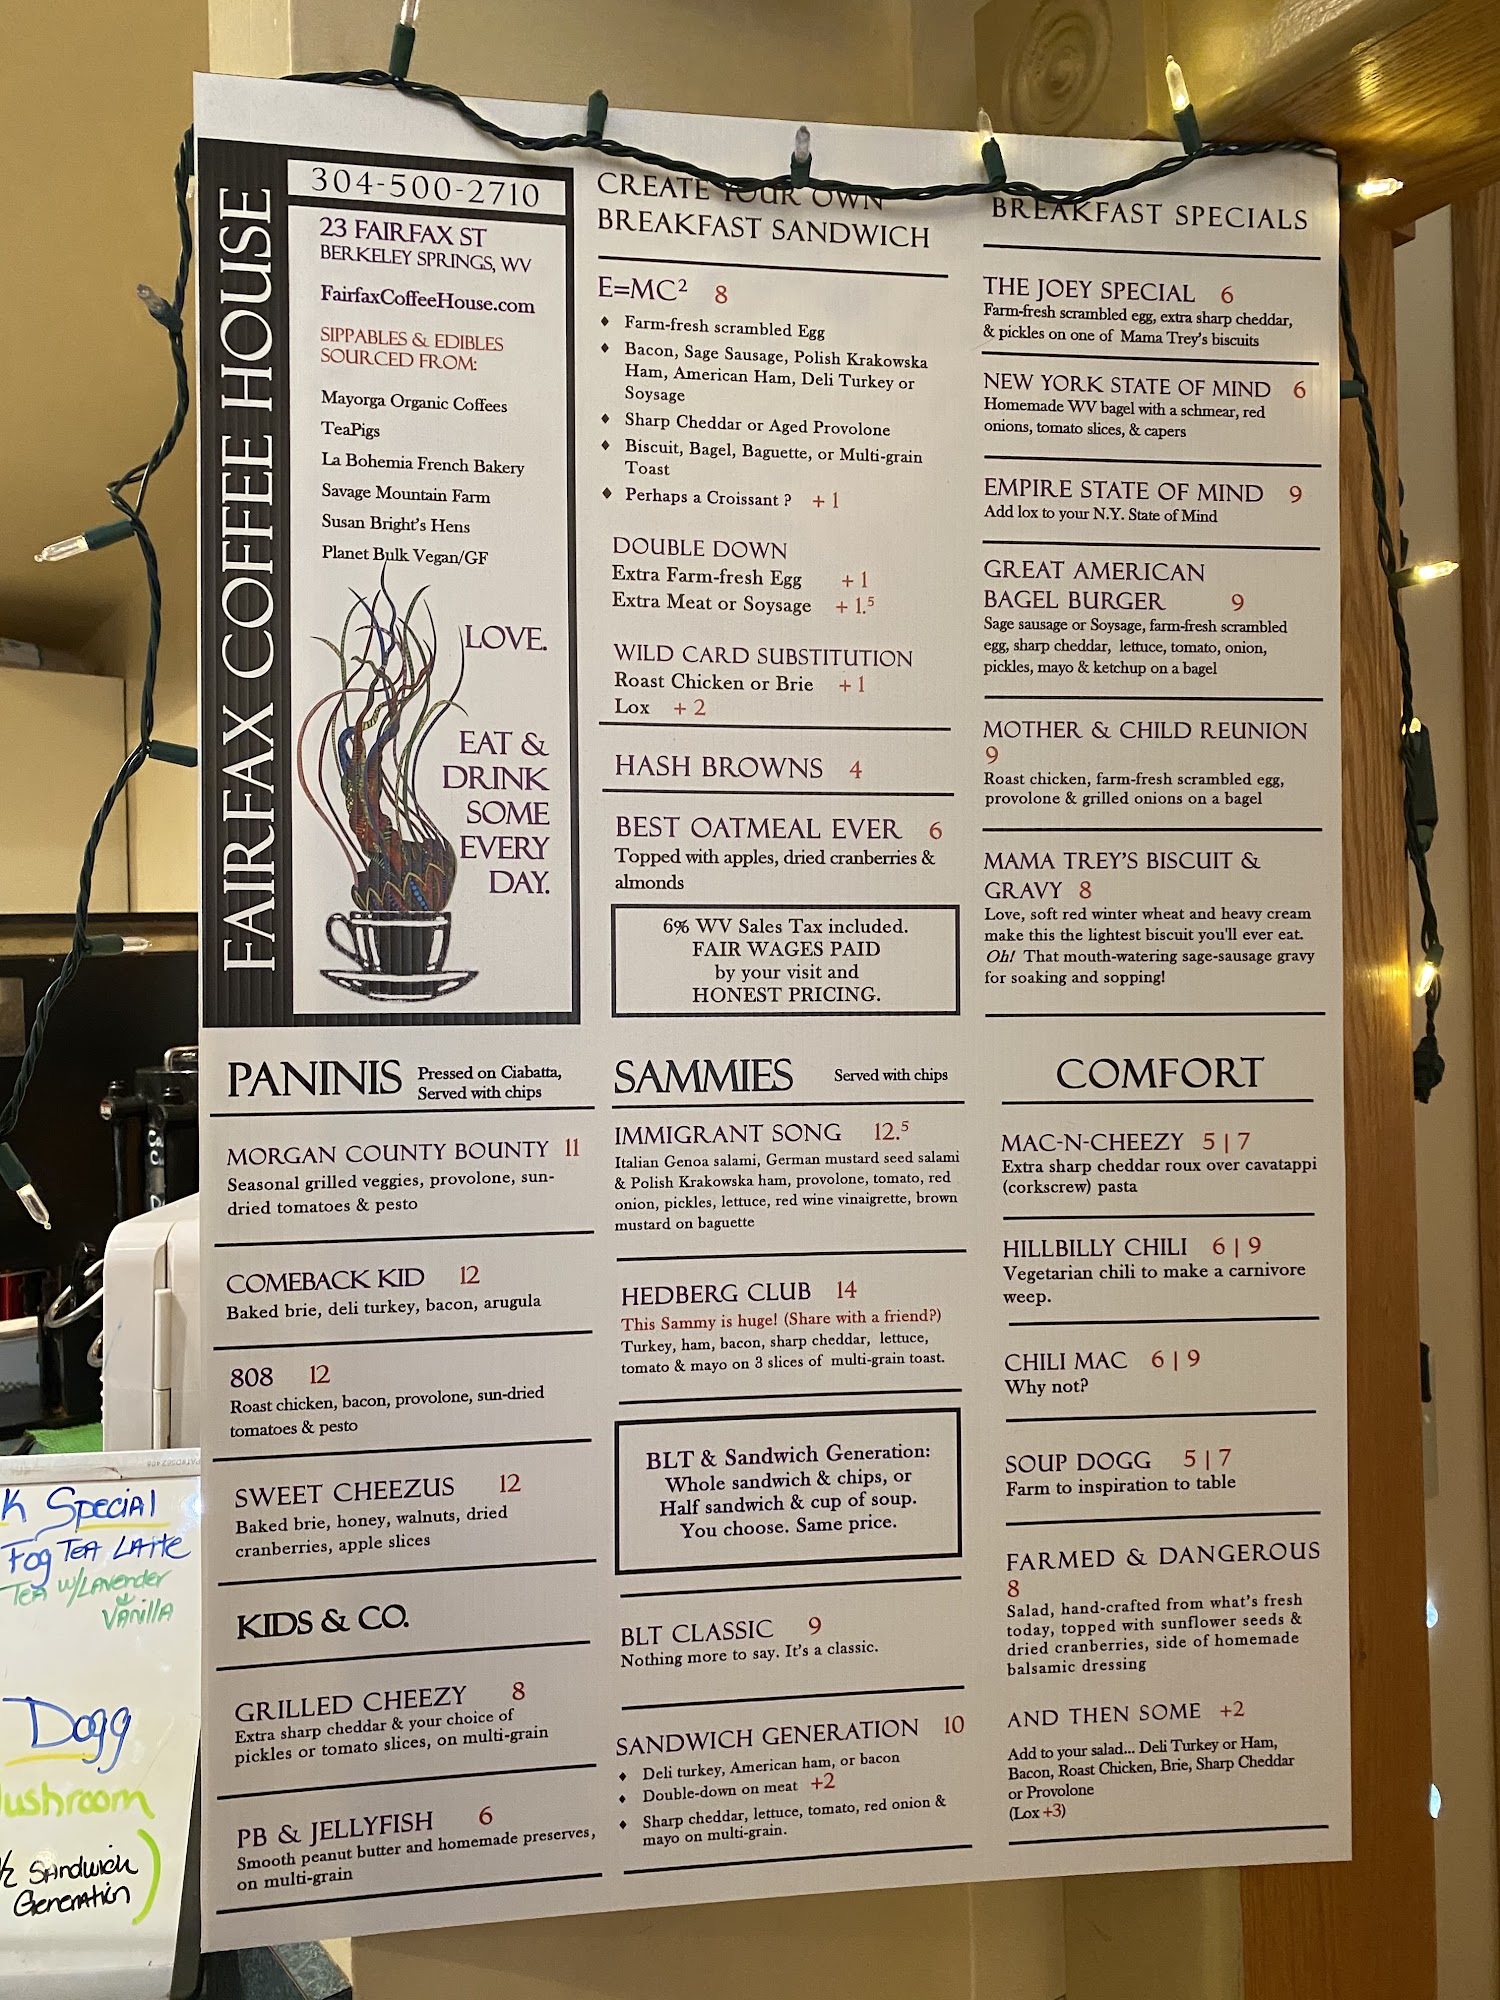 FAIRFAX COFFEE HOUSE
304-500-2710
23 FAIRFAX ST
BERKELEY SPRINGS, WV
FairfaxCoffeeHouse.com
SIPPABLES & EDIBLES
SOURCED FROM:
Mayorga Organic Coffees
TeaPigs
La Bohemia French Bakery
Savage Mountain Farm
Susan Bright's Hens
Planet Bulk Vegan/GF
LOVE.
EAT &
DRINK
SOME
EVERY
DAY.
CREATE YOUR OWN
BREAKFAST SANDWICH
E=MC² 8
♦ Farm-fresh scrambled Egg
♦ Bacon, Sage Sausage, Polish Krakowska
Ham, American Ham, Deli Turkey or
Soysage
♦ Sharp Cheddar or Aged Provolone
♦ Biscuit, Bagel, Baguette, or Multi-grain
Toast
♦ Perhaps a Croissant ? + 1
DOUBLE DOWN
Extra Farm-fresh Egg + 1
Extra Meat or Soysage + 1.⁵
WILD CARD SUBSTITUTION
Roast Chicken or Brie + 1
Lox + 2
HASH BROWNS 4
BEST OATMEAL EVER 6
Topped with apples, dried cranberries &
almonds
6% WV Sales Tax included.
FAIR WAGES PAID
by your visit and
HONEST PRICING.
BREAKFAST SPECIALS
THE JOEY SPECIAL 6
Farm-fresh scrambled egg, extra sharp cheddar,
& pickles on one of Mama Trey's biscuits
NEW YORK STATE OF MIND 6
Homemade WV bagel with a schmear, red
onions, tomato slices, & capers
EMPIRE STATE OF MIND 9
Add lox to your N.Y. State of Mind
GREAT AMERICAN
BAGEL BURGER 9
Sage sausage or Soysage, farm-fresh scrambled
egg, sharp cheddar, lettuce, tomato, onion,
pickles, mayo & ketchup on a bagel
MOTHER & CHILD REUNION
9
Roast chicken, farm-fresh scrambled egg,
provolone & grilled onions on a bagel
MAMA TREY'S BISCUIT &
GRAVY 8
Love, soft red winter wheat and heavy cream
make this the lightest biscuit you'll ever eat.
Oh! That mouth-watering sage-sausage gravy
for soaking and sopping!
PANINIS Pressed on Ciabatta,
Served with chips
MORGAN COUNTY BOUNTY 11
Seasonal grilled veggies, provolone, sun-
dried tomatoes & pesto
COMEBACK KID 12
Baked brie, deli turkey, bacon, arugula
808 12
Roast chicken, bacon, provolone, sun-dried
tomatoes & pesto
SWEET CHEEZUS 12
Baked brie, honey, walnuts, dried
cranberries, apple slices
KIDS & CO.
GRILLED CHEEZY 8
Extra sharp cheddar & your choice of
pickles or tomato slices, on multi-grain
PB & JELLYFISH 6
Smooth peanut butter and homemade preserves,
on multi-grain
SAMMIES Served with chips
IMMIGRANT SONG 12.⁵
Italian Genoa salami, German mustard seed salami
& Polish Krakowska ham, provolone, tomato, red
onion, pickles, lettuce, red wine vinaigrette, brown
mustard on baguette
HEDBERG CLUB 14
This Sammy is huge! (Share with a friend?)
Turkey, ham, bacon, sharp cheddar, lettuce,
tomato & mayo on 3 slices of multi-grain toast.
BLT & Sandwich Generation:
Whole sandwich & chips, or
Half sandwich & cup of soup.
You choose. Same price.
BLT CLASSIC 9
Nothing more to say. It's a classic.
SANDWICH GENERATION 10
♦ Deli turkey, American ham, or bacon
♦ Double-down on meat +2
♦ Sharp cheddar, lettuce, tomato, red onion &
mayo on multi-grain.
COMFORT
MAC-N-CHEEZY 5 | 7
Extra sharp cheddar roux over cavatappi
(corkscrew) pasta
HILLBILLY CHILI 6 | 9
Vegetarian chili to make a carnivore
weep.
CHILI MAC 6 | 9
Why not?
SOUP DOGG 5 | 7
Farm to inspiration to table
FARMED & DANGEROUS
8
Salad, hand-crafted from what's fresh
today, topped with sunflower seeds &
dried cranberries, side of homemade
balsamic dressing
AND THEN SOME +2
Add to your salad... Deli Turkey or Ham,
Bacon, Roast Chicken, Brie, Sharp Cheddar
or Provolone
(Lox +3)
K Special
Fog Tea Latte
Tea w/Lavender
Vanilla
Dogg
ushroom
1/2 Sandwich
Generation)